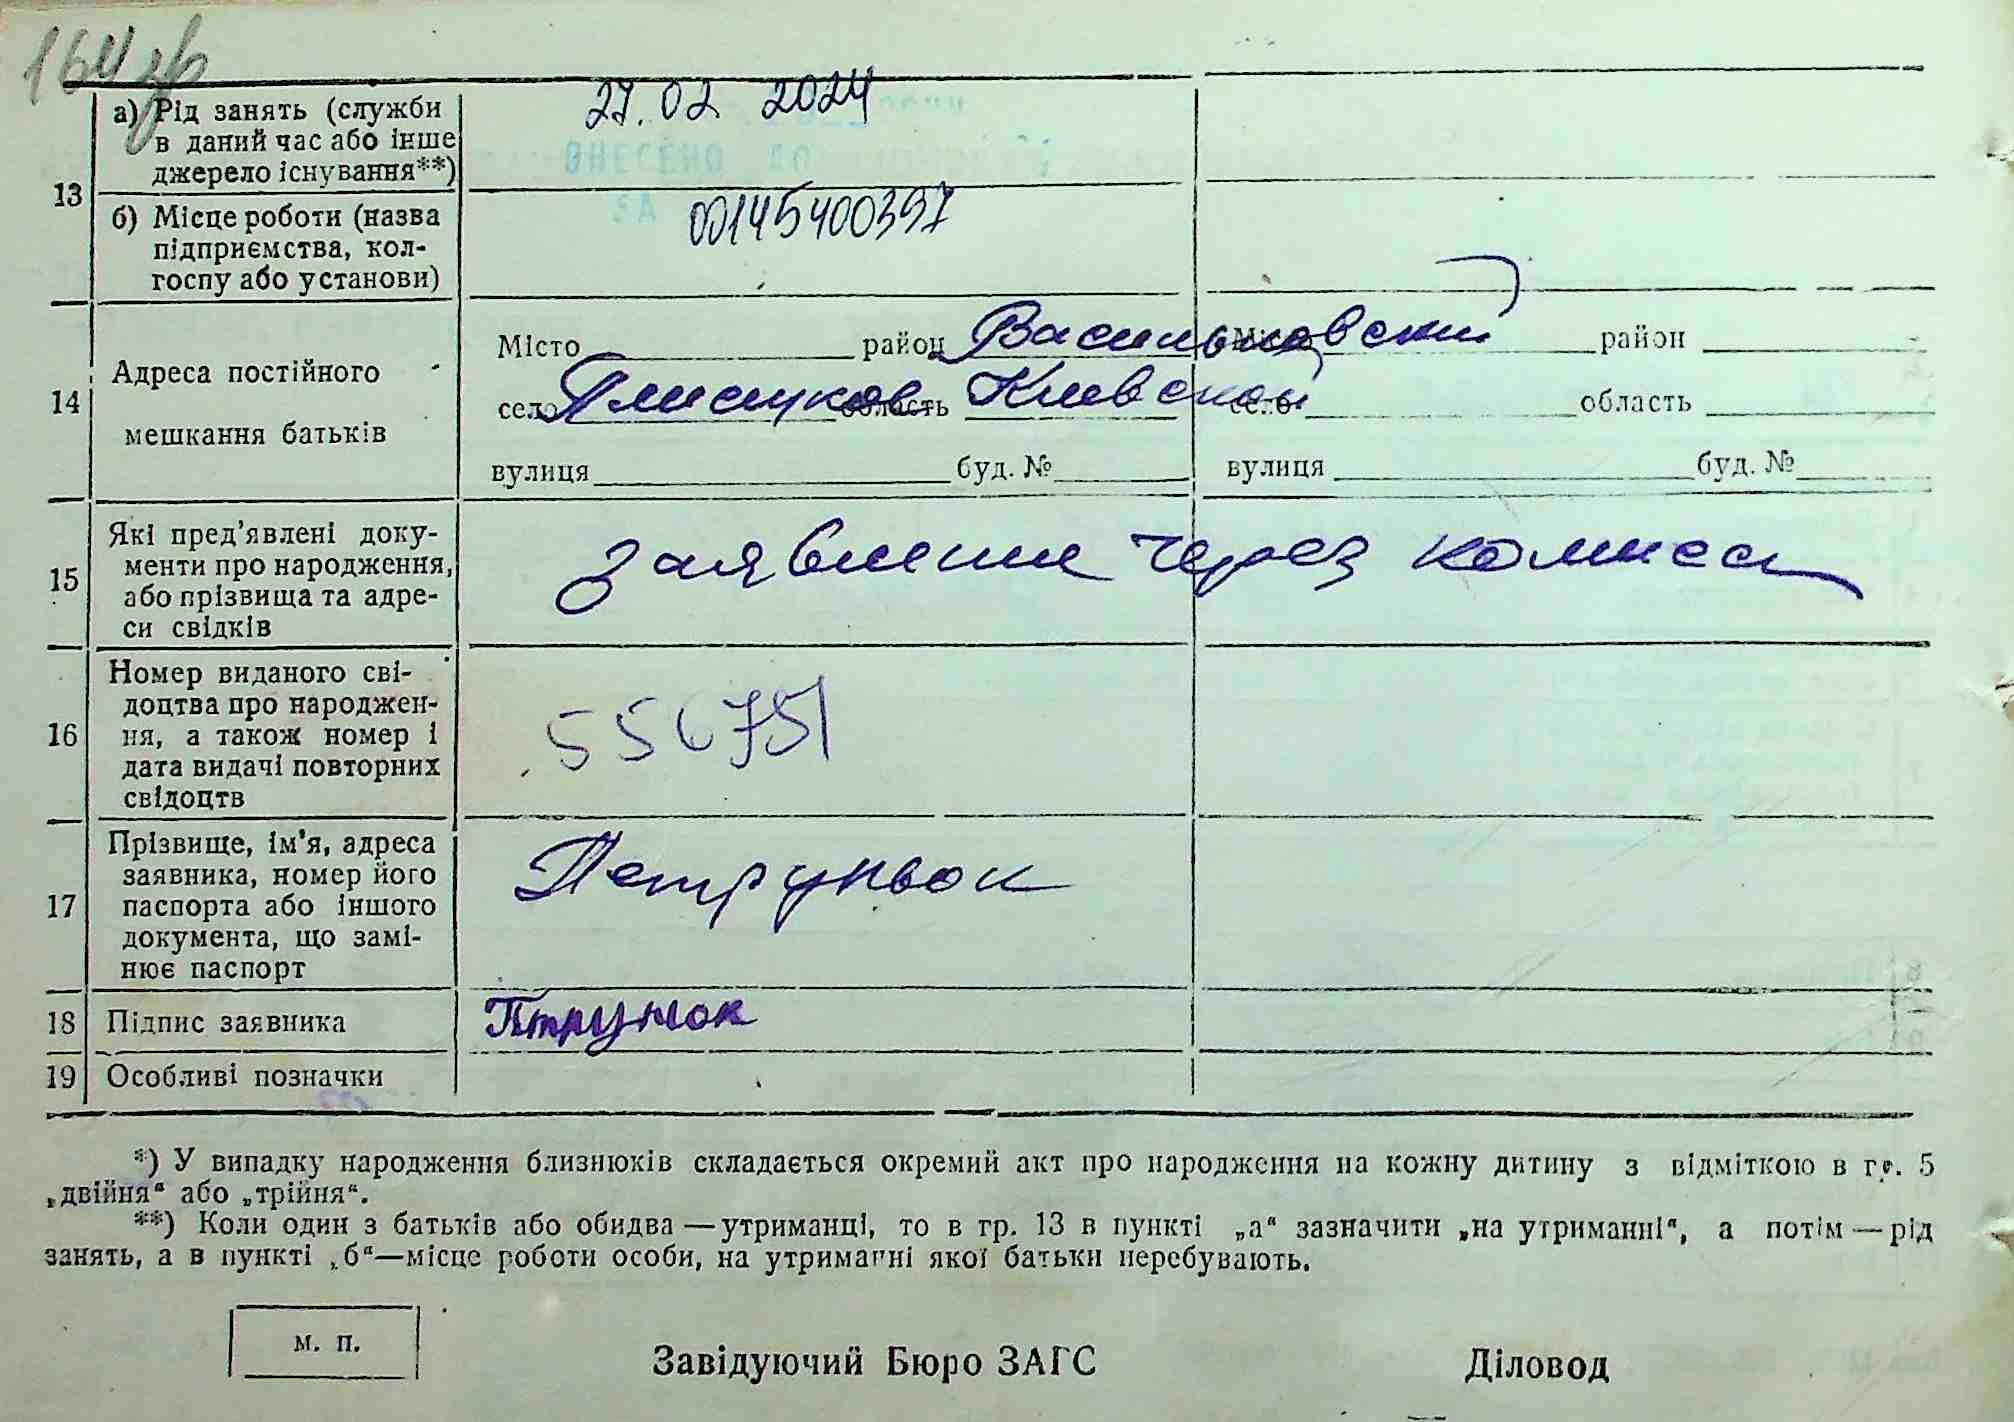 164 зв
27.02 2024
а) Рід занять (служби
в даний час або інше
джерело існування**)
ВНЕСЕНО ДО
ЗА
13
00145400397
б) Місце роботи (назва
підприємства, кол-
госпу або установи)
14
Адреса постійного
мешкання батьків
Місто район Васильковский
село Плисецкое область Киевской
вулиця буд. №
Місто район
село область
вулиця буд. №
15
Які пред'явлені доку-
менти про народження,
або прізвища та адре-
си свідків
заявление через комисси
16
Номер виданого сві-
доцтва про народжен-
ня, а також номер і
дата видачі повторних
свідоцтв
556751
17
Прізвище, ім'я, адреса
заявника, номер його
паспорта або іншого
документа, що замі-
нює паспорт
Петруньок
18 Підпис заявника Птрунок
19 Особливі позначки
*) У випадку народження близнюків складається окремий акт про народження на кожну дитину з відміткою в гр. 5
„двійня“ або „трійня“.
**) Коли один з батьків або обидва — утриманці, то в гр. 13 в пункті „а“ зазначити „на утриманні“, а потім — рід
занять, а в пункті „б“—місце роботи особи, на утриманні якої батьки перебувають.
м. п.
Завідуючий Бюро ЗАГС
Діловод